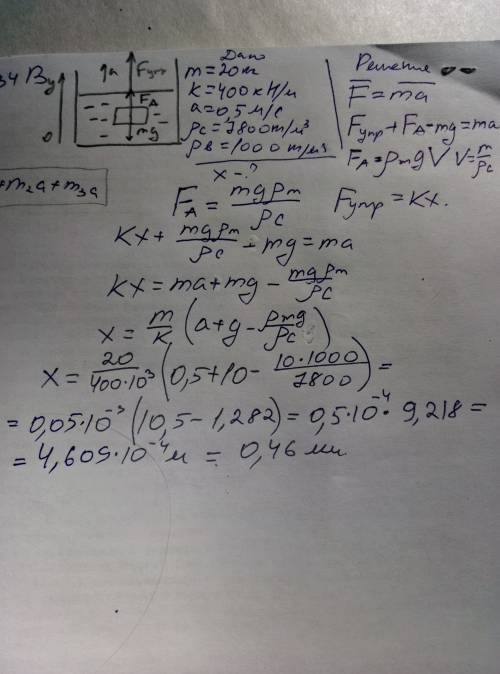 34 В y ↑a Fупр
Fа
mg
0
+m₂a+m₃a
Дано
m=20т
k=400кН/м
a=0,5м/с
ρc=7800т/м³
ρв=1000т/м³
x-?
Решение
F=ma
Fупр+Fа-mg=ma
Fа=ρmgV V=m/ρc
Fа=mgρm/ρc Fупр=kx.
kx+mgρm/ρc-mg=ma
kx=ma+mg-mgρm/ρc
x=m/k(a+g-ρmg/ρc)
x=20/400·10³(0,5+10-10·1000/7800)=
=0,05·10⁻³(10,5-1,282)=0,5·10⁻⁴·9,218=
=4,609·10⁻⁴м=0,46мм